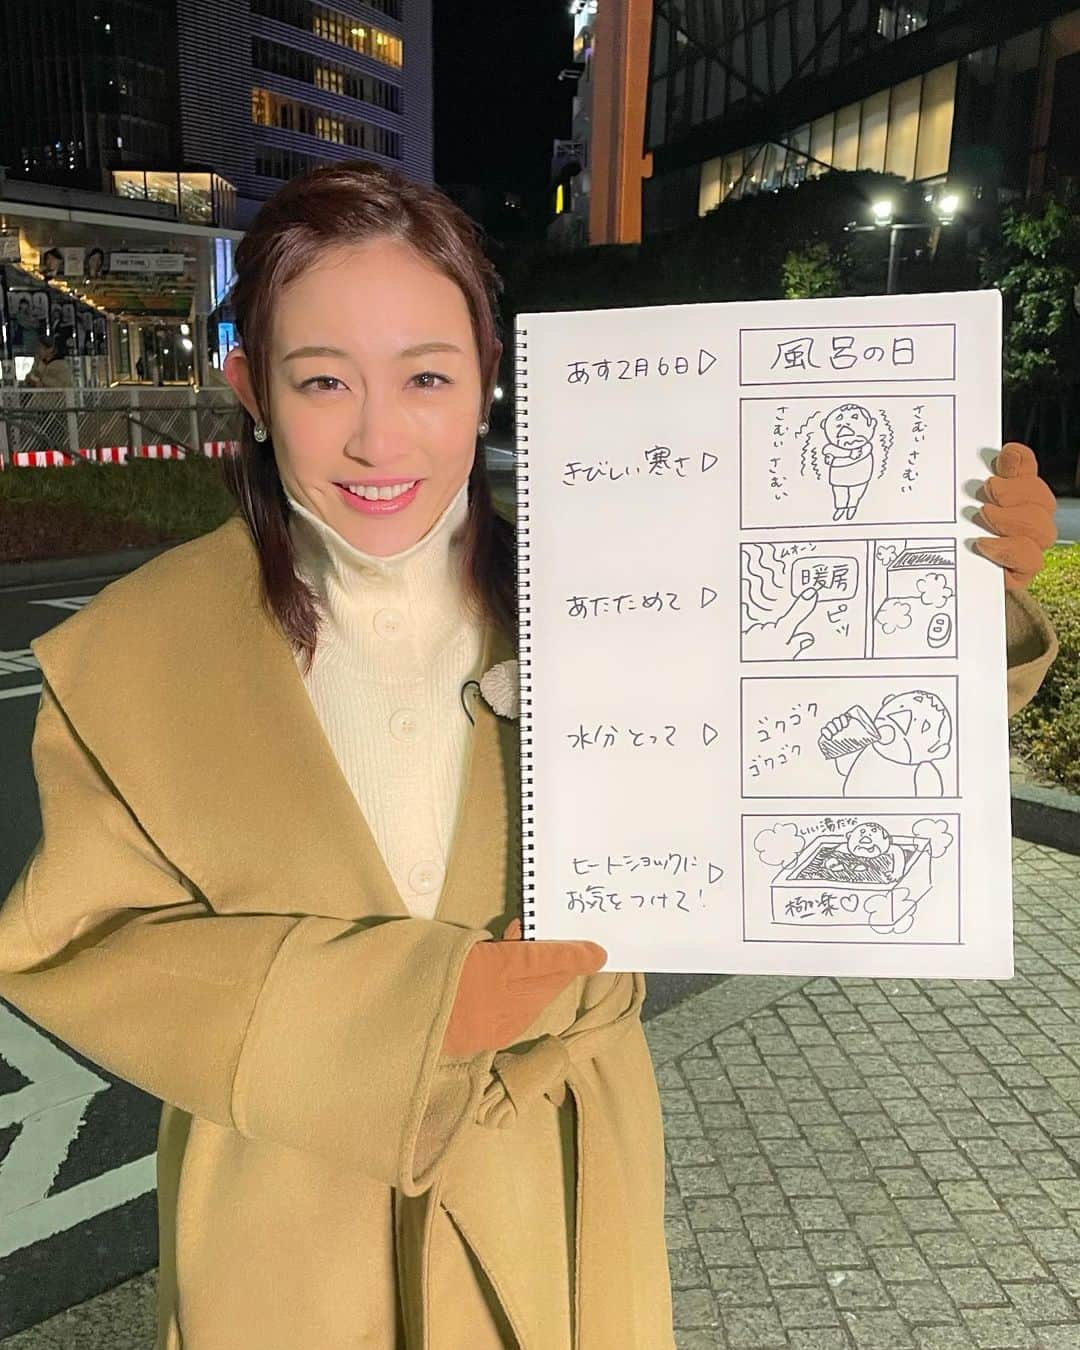 THE TIME,
あす2月6日▷
風呂の日
きびしい寒さ▷
さむいさむい
さむいさむい
あたためて▷
ムオーン
暖房
ピッ
水分とって▷
ゴクゴク
ゴクゴク
ヒートショックに▷
お気をつけて!
いい湯だな
極楽♡